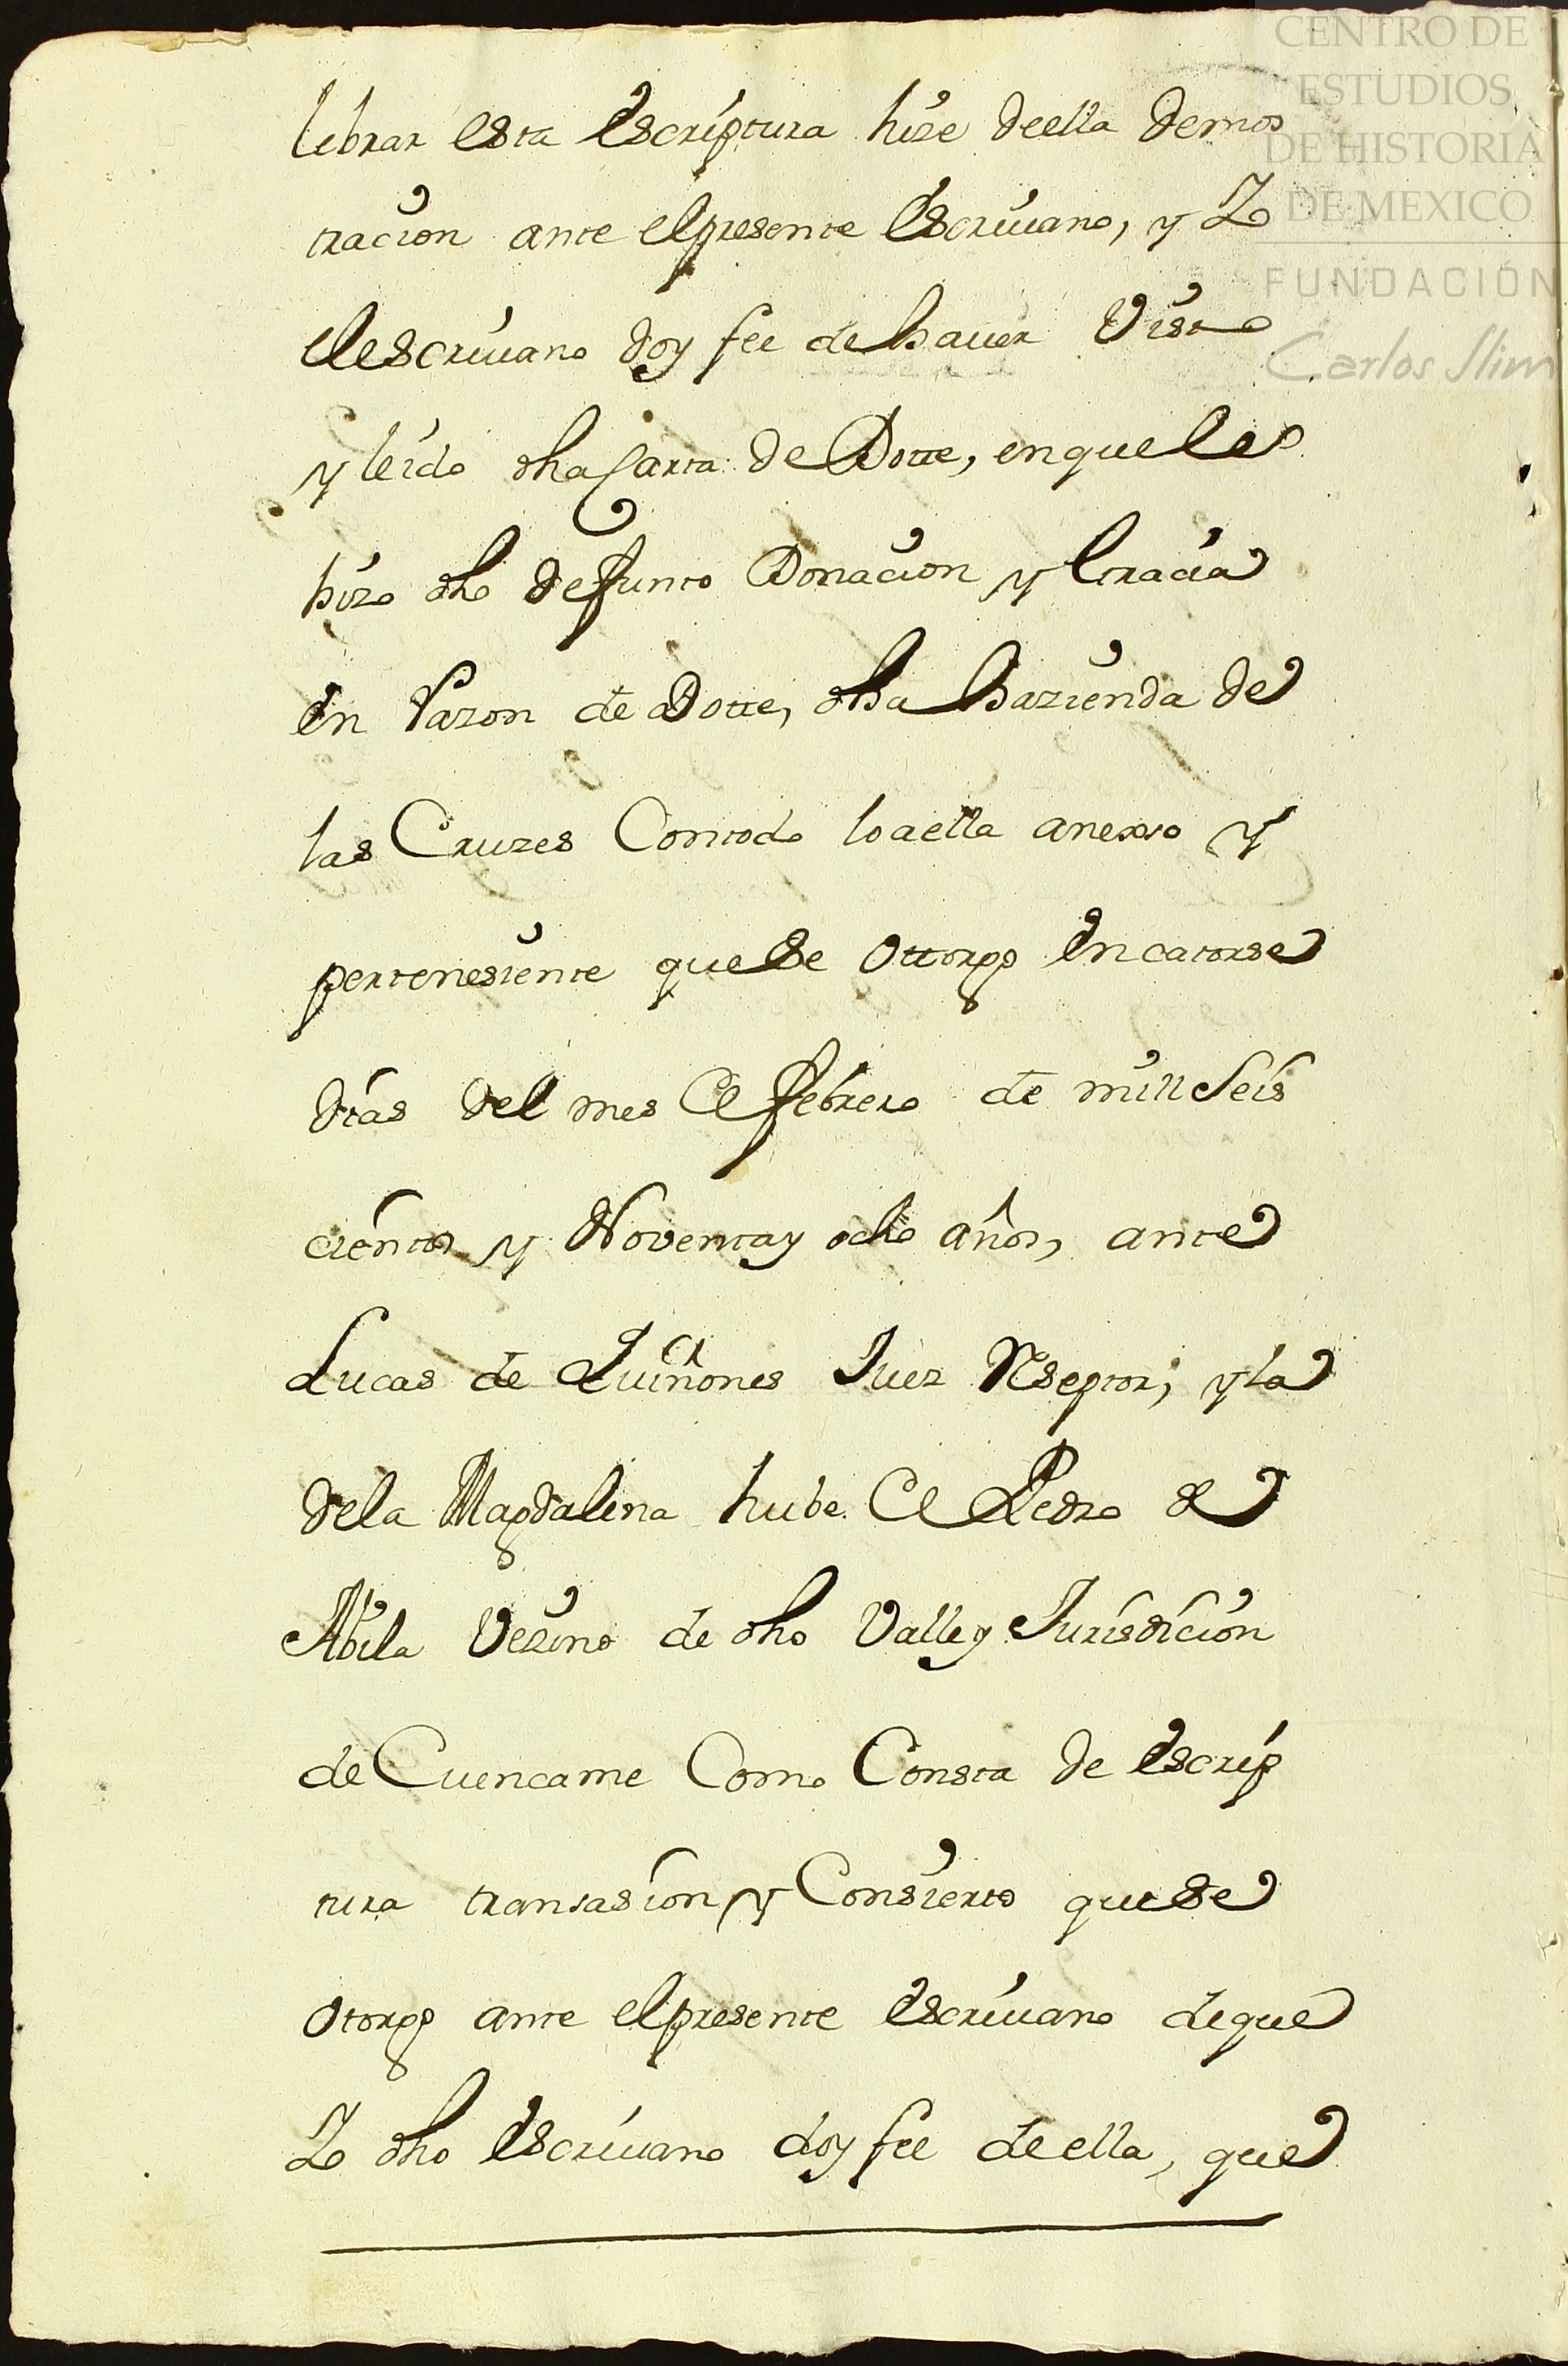 CENTRO DE
ESTUDIOS
DE HISTORIA
DE MEXICO
FUNDACIÓN
Carlos Slim
librar esta Escriptura hize deella demos
tracion ante elpresente Escriuano, y Yo
elescriuano doy fee de hauer Visto
y leido dha Carta de Dotte, enquele
hizo dho defunto Donacion y Gracia
en Razon de Dotte, dha hazienda de
las Cruzes Contodo loaella anexso y
pertenesiente quese Ottorgo en catorse
dias del mes de febrero de mill Seis
cientos y Noventay ocho años, ante
Lucas de Quiñones Juez Reseptor; yla
dela Magdalena hube de Pedro de
Abila Vezino de dho Valley Jurisdicion
de Cuencame Como Consta de escrip
tura transasion y Consierto quese
otorgo ante elpresente escriuano deque
Yo dho Escriuano doy fee deella, que